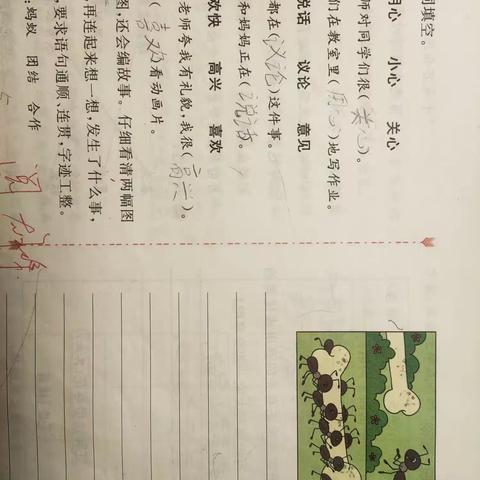 词填空。
用心 小心 关心
师对同学们很(关心)。
们在教室里(用心)地写作业。
说话 议论 意见
都在(议论)这件事。
和妈妈正在(说话)。
欢快 高兴 喜欢
老师夸我有礼貌,我很(高兴)。
(喜欢)看动画片。
图,还会编故事。仔细看清两幅图
再连起来想一想,发生了什么事,
,要求语句通顺、连贯,字迹工整。
:蚂蚁 团结 合作